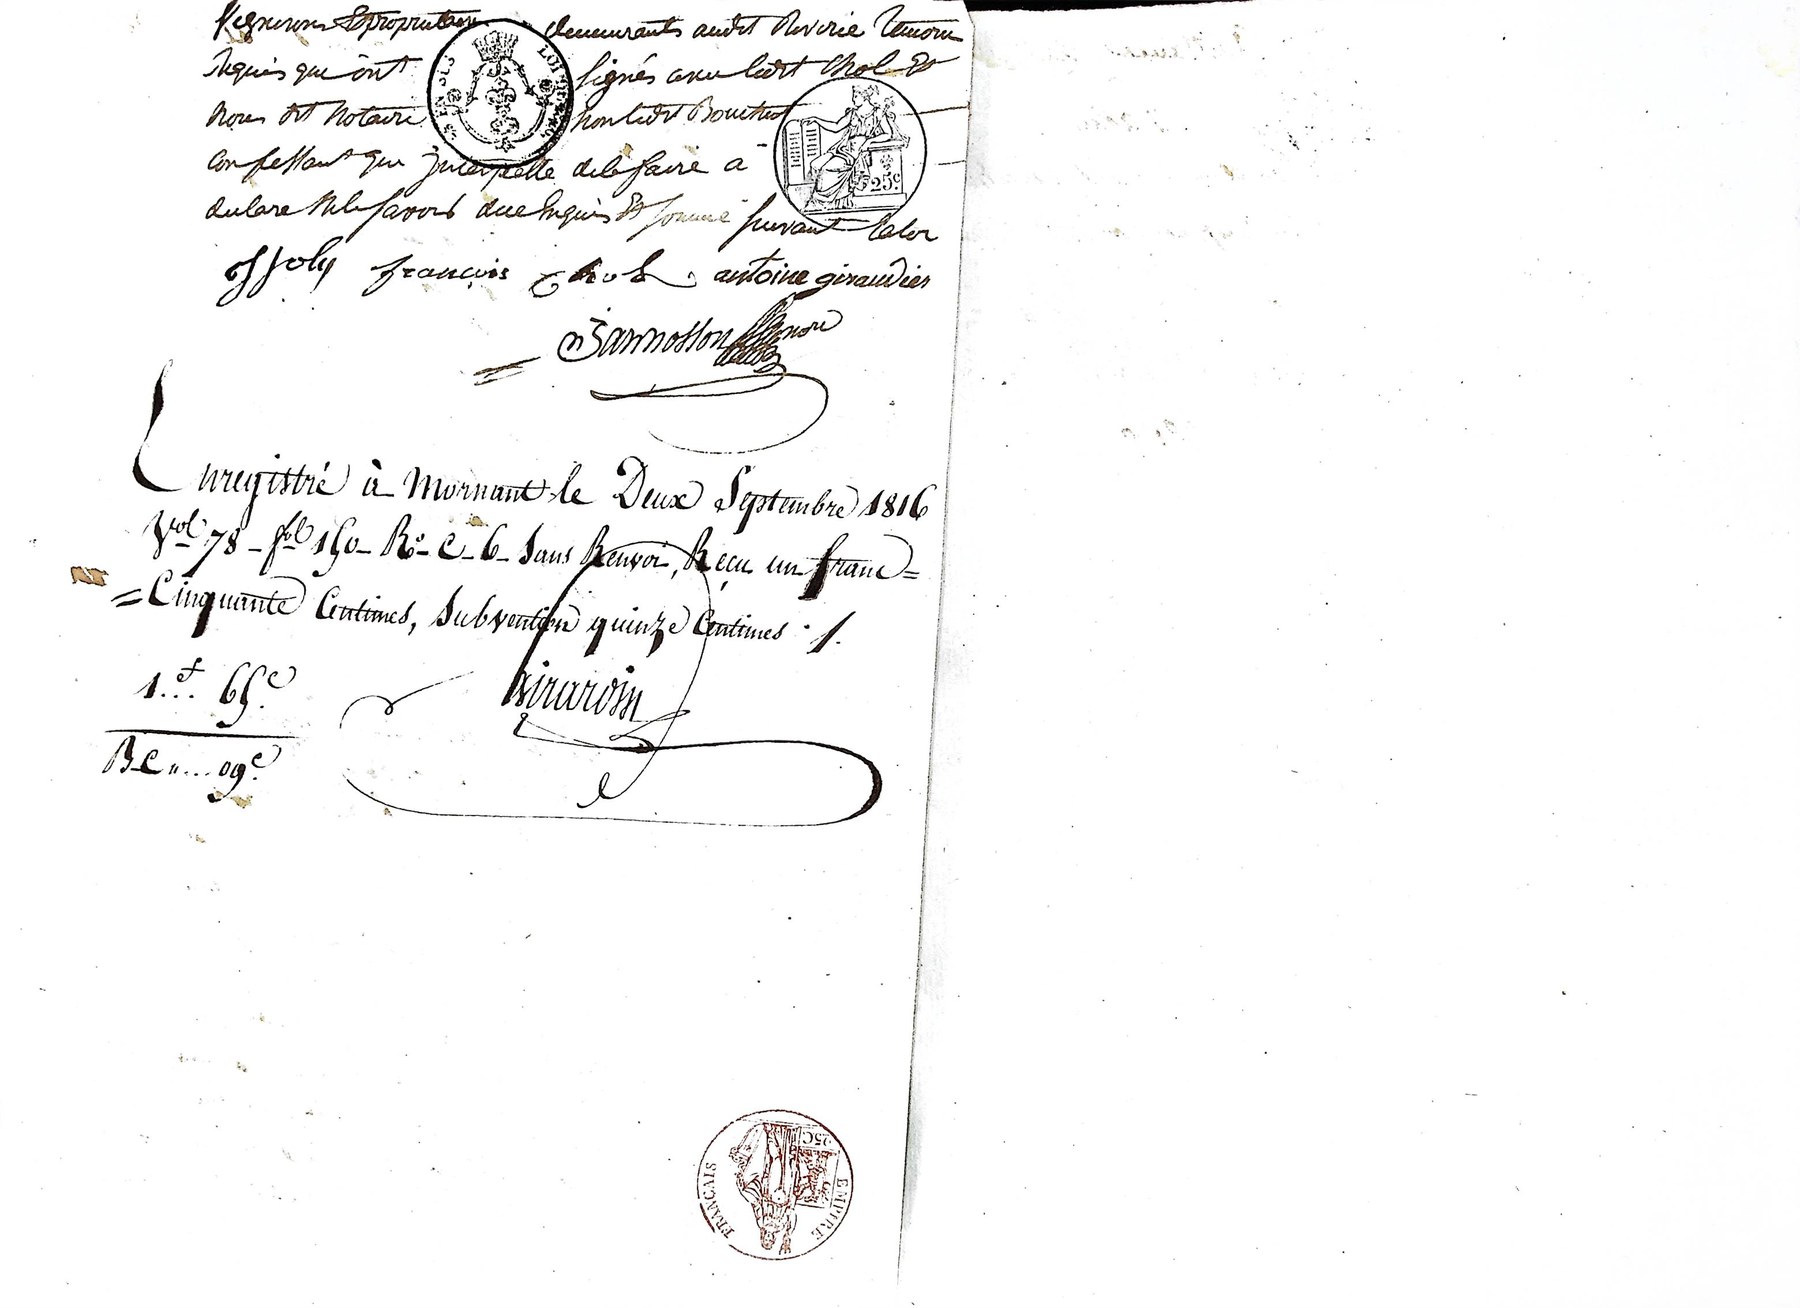 vignerons & propriétaires demeurants audit Riverie temoins
requis qui ont signés avec ledit Chol et
nous dit Notaire non ledit Bouchut
confessant que Interpellé de le faire à
declaré ne le savoir due requis et sommé suivant la loi
ff joly françois Chol antoine giraudier
Jannosson Notaire
Enregistré à Mornant le Deux Septembre 1816
Vol. 78 - fol 150 - Ro. C. 6 - Sans Renvoi, Reçu un franc =
= Cinquante Centimes, Subvention quinze Centimes ./.
1.f... 65.c
Girardin
B.C. "... 09c.
LOI DE
25c.
EMPIRE FRANÇAIS
25C